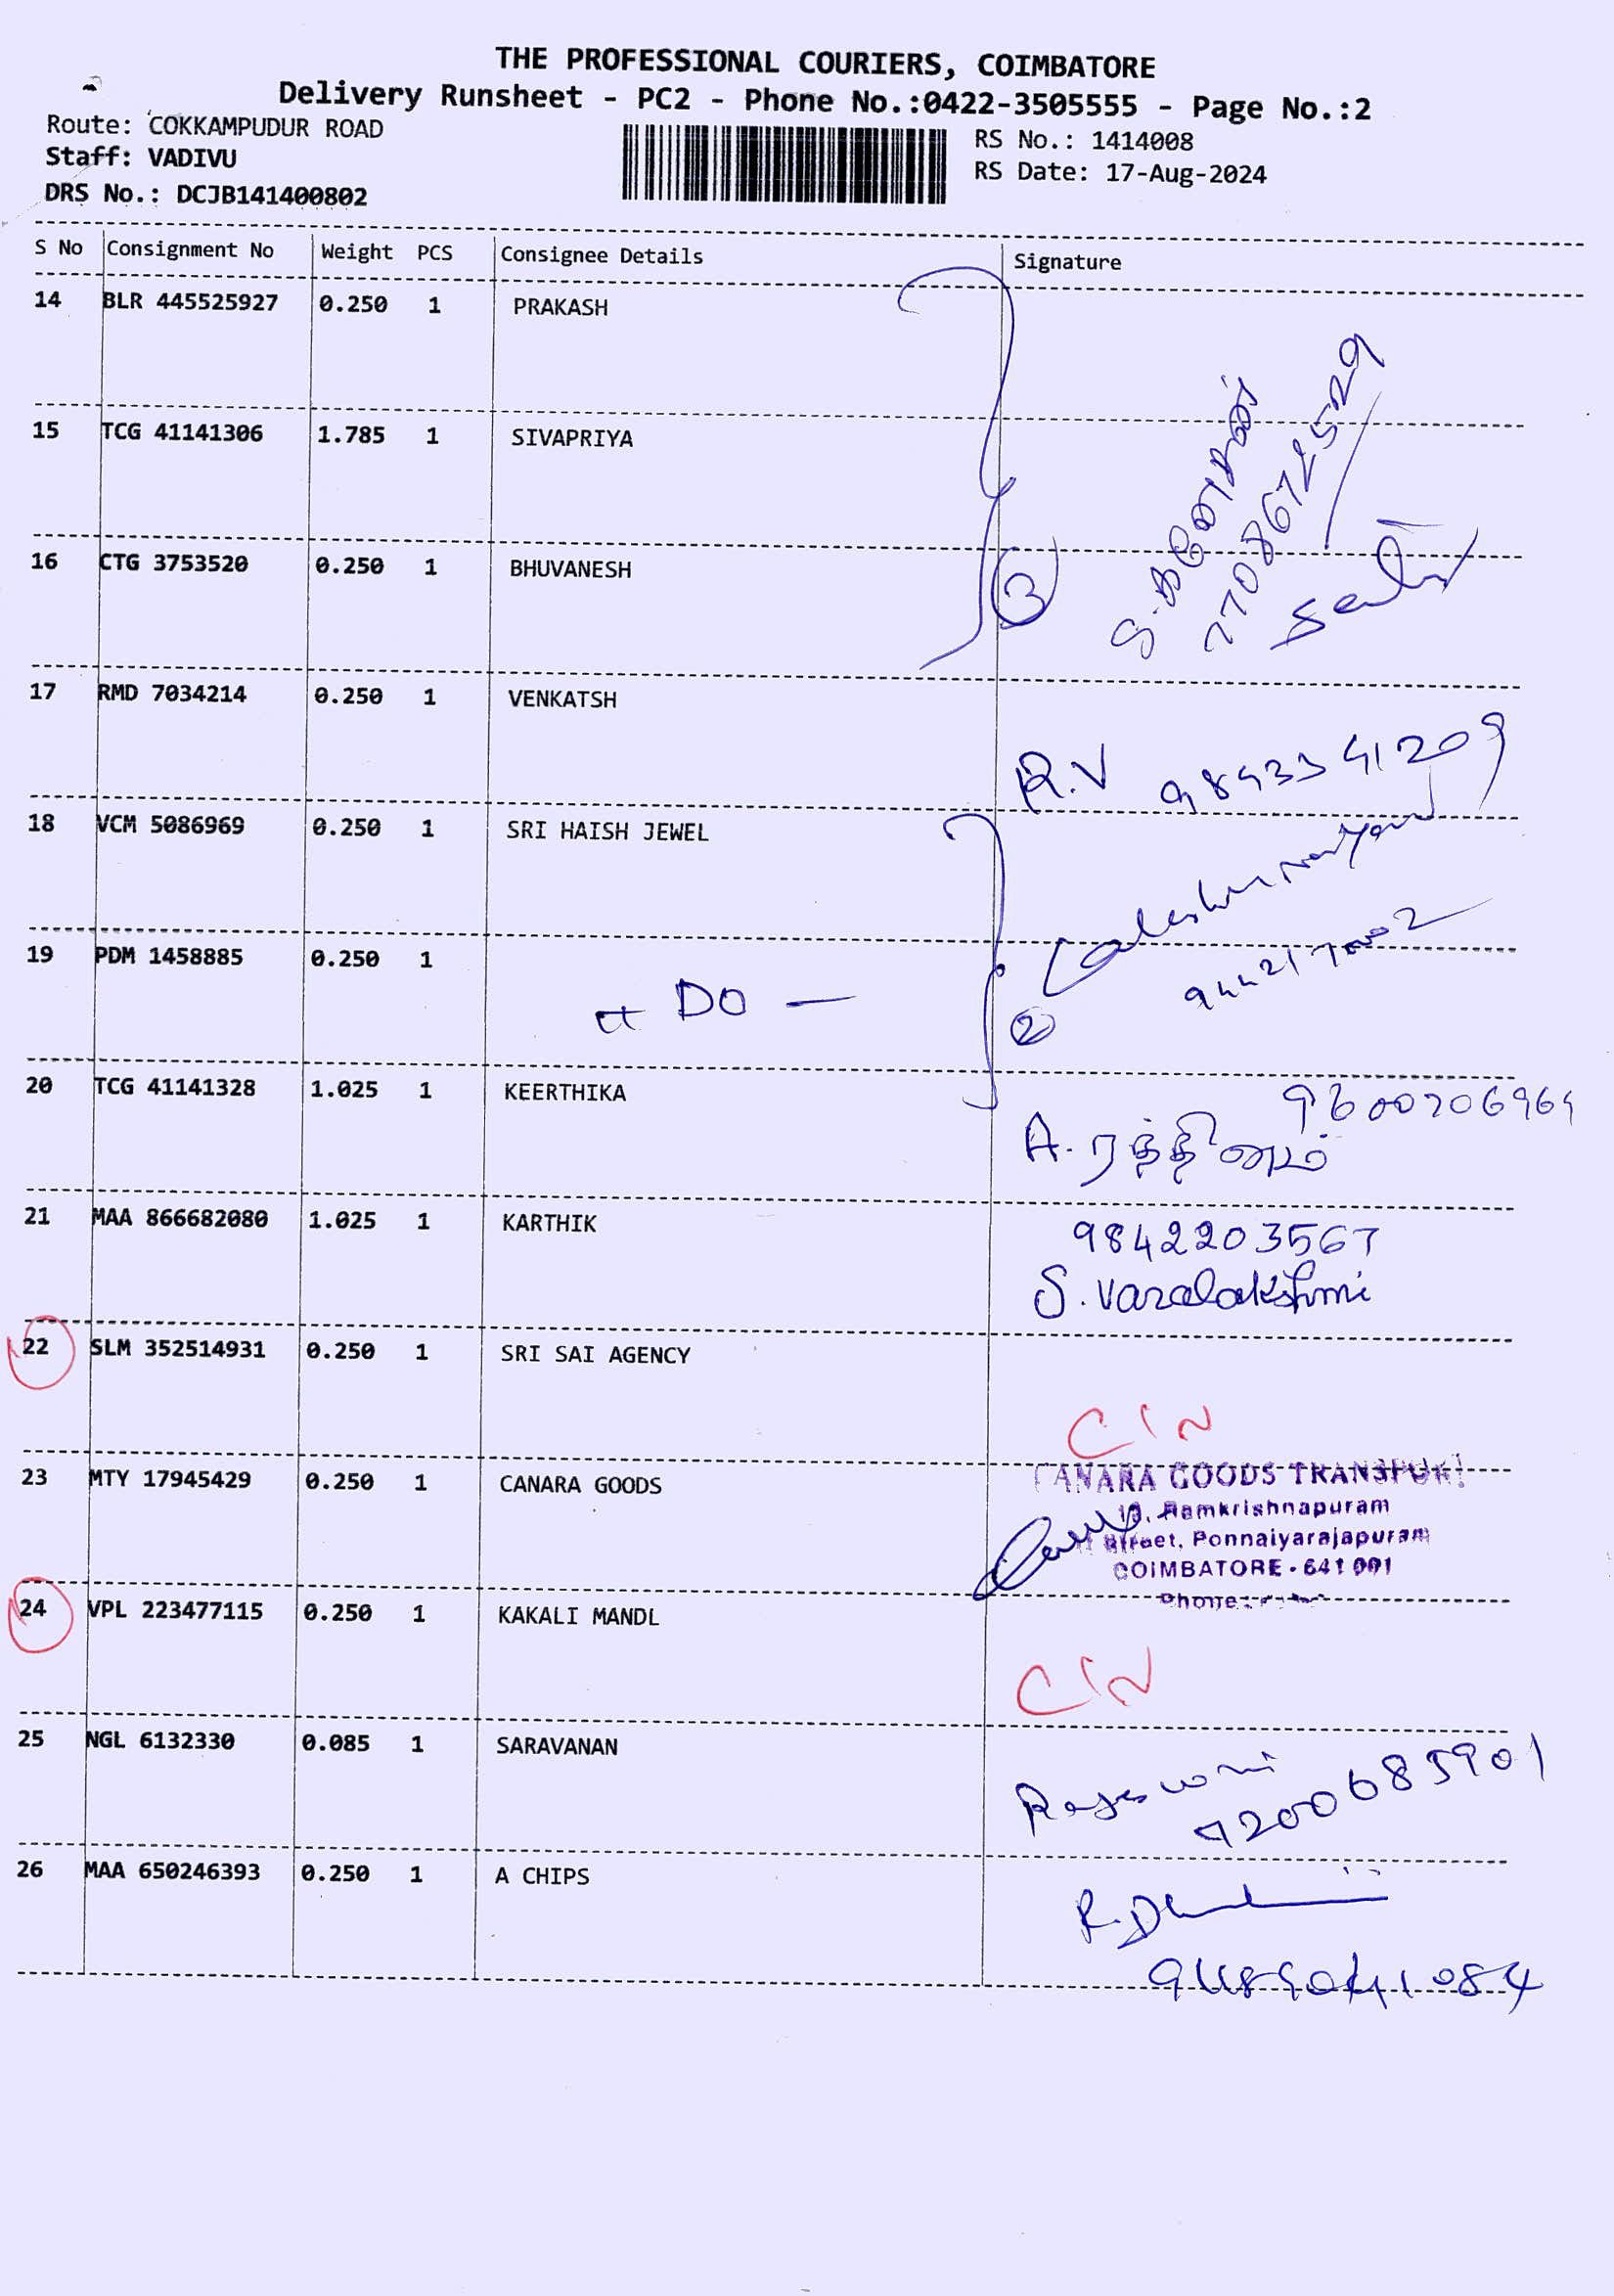 THE PROFESSIONAL COURIERS, COIMBATORE
Delivery Runsheet - PC2 - Phone No.:0422-3505555 - Page No.:2
Route: COKKAMPUDUR ROAD
Staff: VADIVU
DRS No.: DCJB141400802
RS No.: 1414008
RS Date: 17-Aug-2024
S No Consignment No Weight PCS Consignee Details Signature
14 BLR 445525927 0.250 1 PRAKASH
15 TCG 41141306 1.785 1 SIVAPRIYA
16 CTG 3753520 0.250 1 BHUVANESH
3
7708672529
17 RMD 7034214 0.250 1 VENKATSH
R.V 9843341209
18 VCM 5086969 0.250 1 SRI HAISH JEWEL
19 PDM 1458885 0.250 1
DO —
2
20 TCG 41141328 1.025 1 KEERTHIKA
A. ரத்தினம்
21 MAA 866682080 1.025 1 KARTHIK
9842203567
S. Varalakshmi
22 SLM 352514931 0.250 1 SRI SAI AGENCY
CIN
23 MTY 17945429 0.250 1 CANARA GOODS
CANARA GOODS TRANSPORT
Ramkrishnapuram
Street, Ponnaiyarajapuram
COIMBATORE - 641 001
Phone:
24 VPL 223477115 0.250 1 KAKALI MANDL
CIN
25 NGL 6132330 0.085 1 SARAVANAN
Rajeswari
9200685901
26 MAA 650246393 0.250 1 A CHIPS